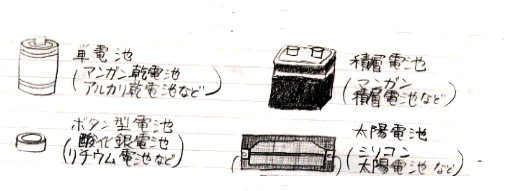 単電池
(マンガン乾電池
アルカリ乾電池など)
積層電池
(マンガン
積層電池など)
ボタン型電池
(酸化銀電池
リチウム電池など)
太陽電池
(シリコン
太陽電池など)